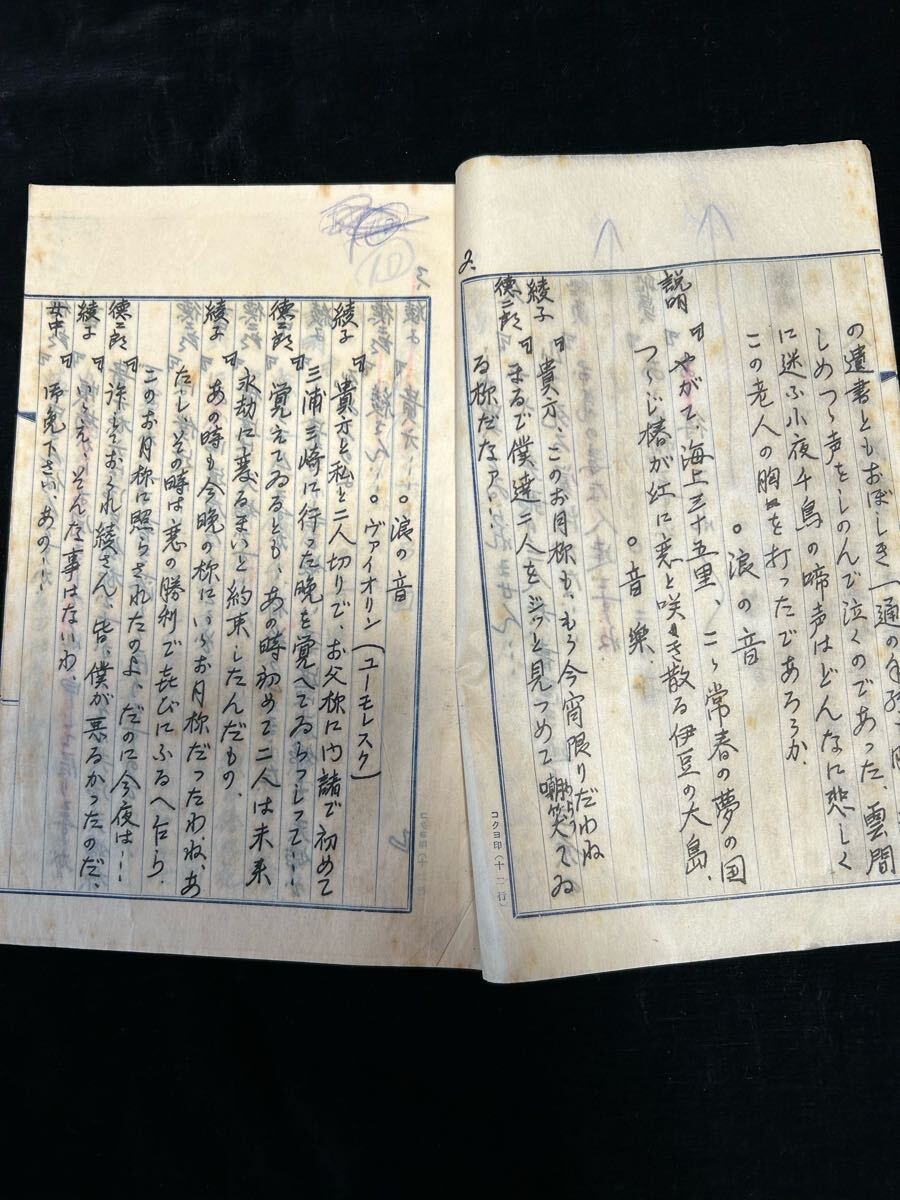 の遺書ともおぼしき一通の
しめつゝ声をしのんで泣くのであった、雲間
に迷ふ小夜千鳥の啼声はどんなに悲しく
この老人の胸を打ったであろうか
。浪の音
説明「やがて、海上三十五里、こゝ常春の夢の国
つゝじ椿が紅に恋と咲き散る伊豆の大島、
。音楽
綾子「貴方、このお月様も、もう今宵限りだわね
徳二郎「まるで僕達二人をジッと見つめて嘲笑てゐ
わらっ
る様だなァ…
2.
コクヨ印(十二行)
3
10
。浪の音
。ヴァイオリン(ユーモレスク)
綾子「貴方と私と二人切りで、お父様に内諸で初めて
三浦三崎に行った晩を覚へてゐらっして…
徳二郎「覚えてゐるとも、あの時初めて二人は未来
永劫に変るまいと約束したんだもの、
綾子「あの時も今晩の様にいゝお月様だったわ、ね、あ
たし、その時は恋の勝利で喜びにふるへ乍ら、
このお月様に照らされたのよ、だのに今夜は…
徳二郎「許しておくれ綾さん、皆、僕が悪るかったのだ、
綾子「いゝえ、そんな事はないわ、
女中「御免下さい、あの…
コクヨ印(十